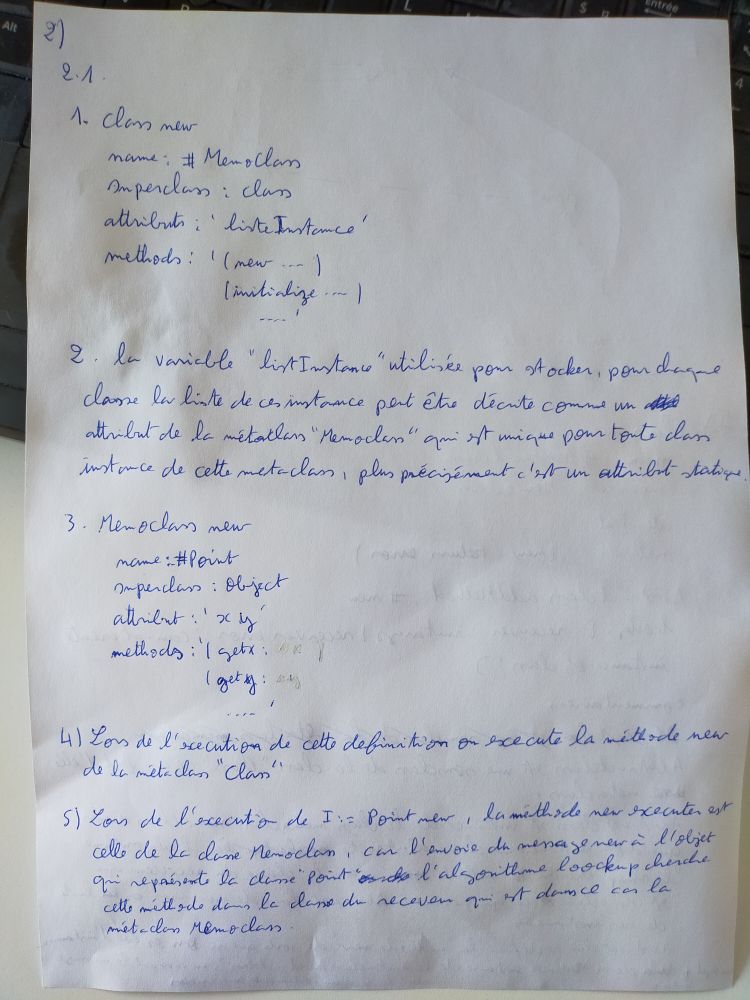 2)
2.1.
1. Class new
name: # MemoClass
superclass : class
attributs : 'listeInstance'
methods : '(new .... )
(initialize ....)
....'
2. la variable "listInstance" utilisée pour stocker, pour chaque
classe la liste de ces instance peut être décrite comme un
attribut de la métatlass "Memoclass" qui est unique pour toute class
instance de cette metaclass, plus précisément c'est un attribut statique.
3. Memoclass new
name :#Point
superclass : Object
attribut : 'x y'
methods : '( getx :
( gety :
....'
4) Lors de l'execution de cette definition on execute la méthode new
de la métaclass "Class"
5) Lors de l'execution de I := Point new, la méthode new executer est
celle de la classe Memoclass, car l'envoie du message new à l'objet
qui représente la classe "Point" l'algorithme loockup cherche
cette méthode dans la classe du receveur qui est dans ce cas la
métaclass Memoclass.